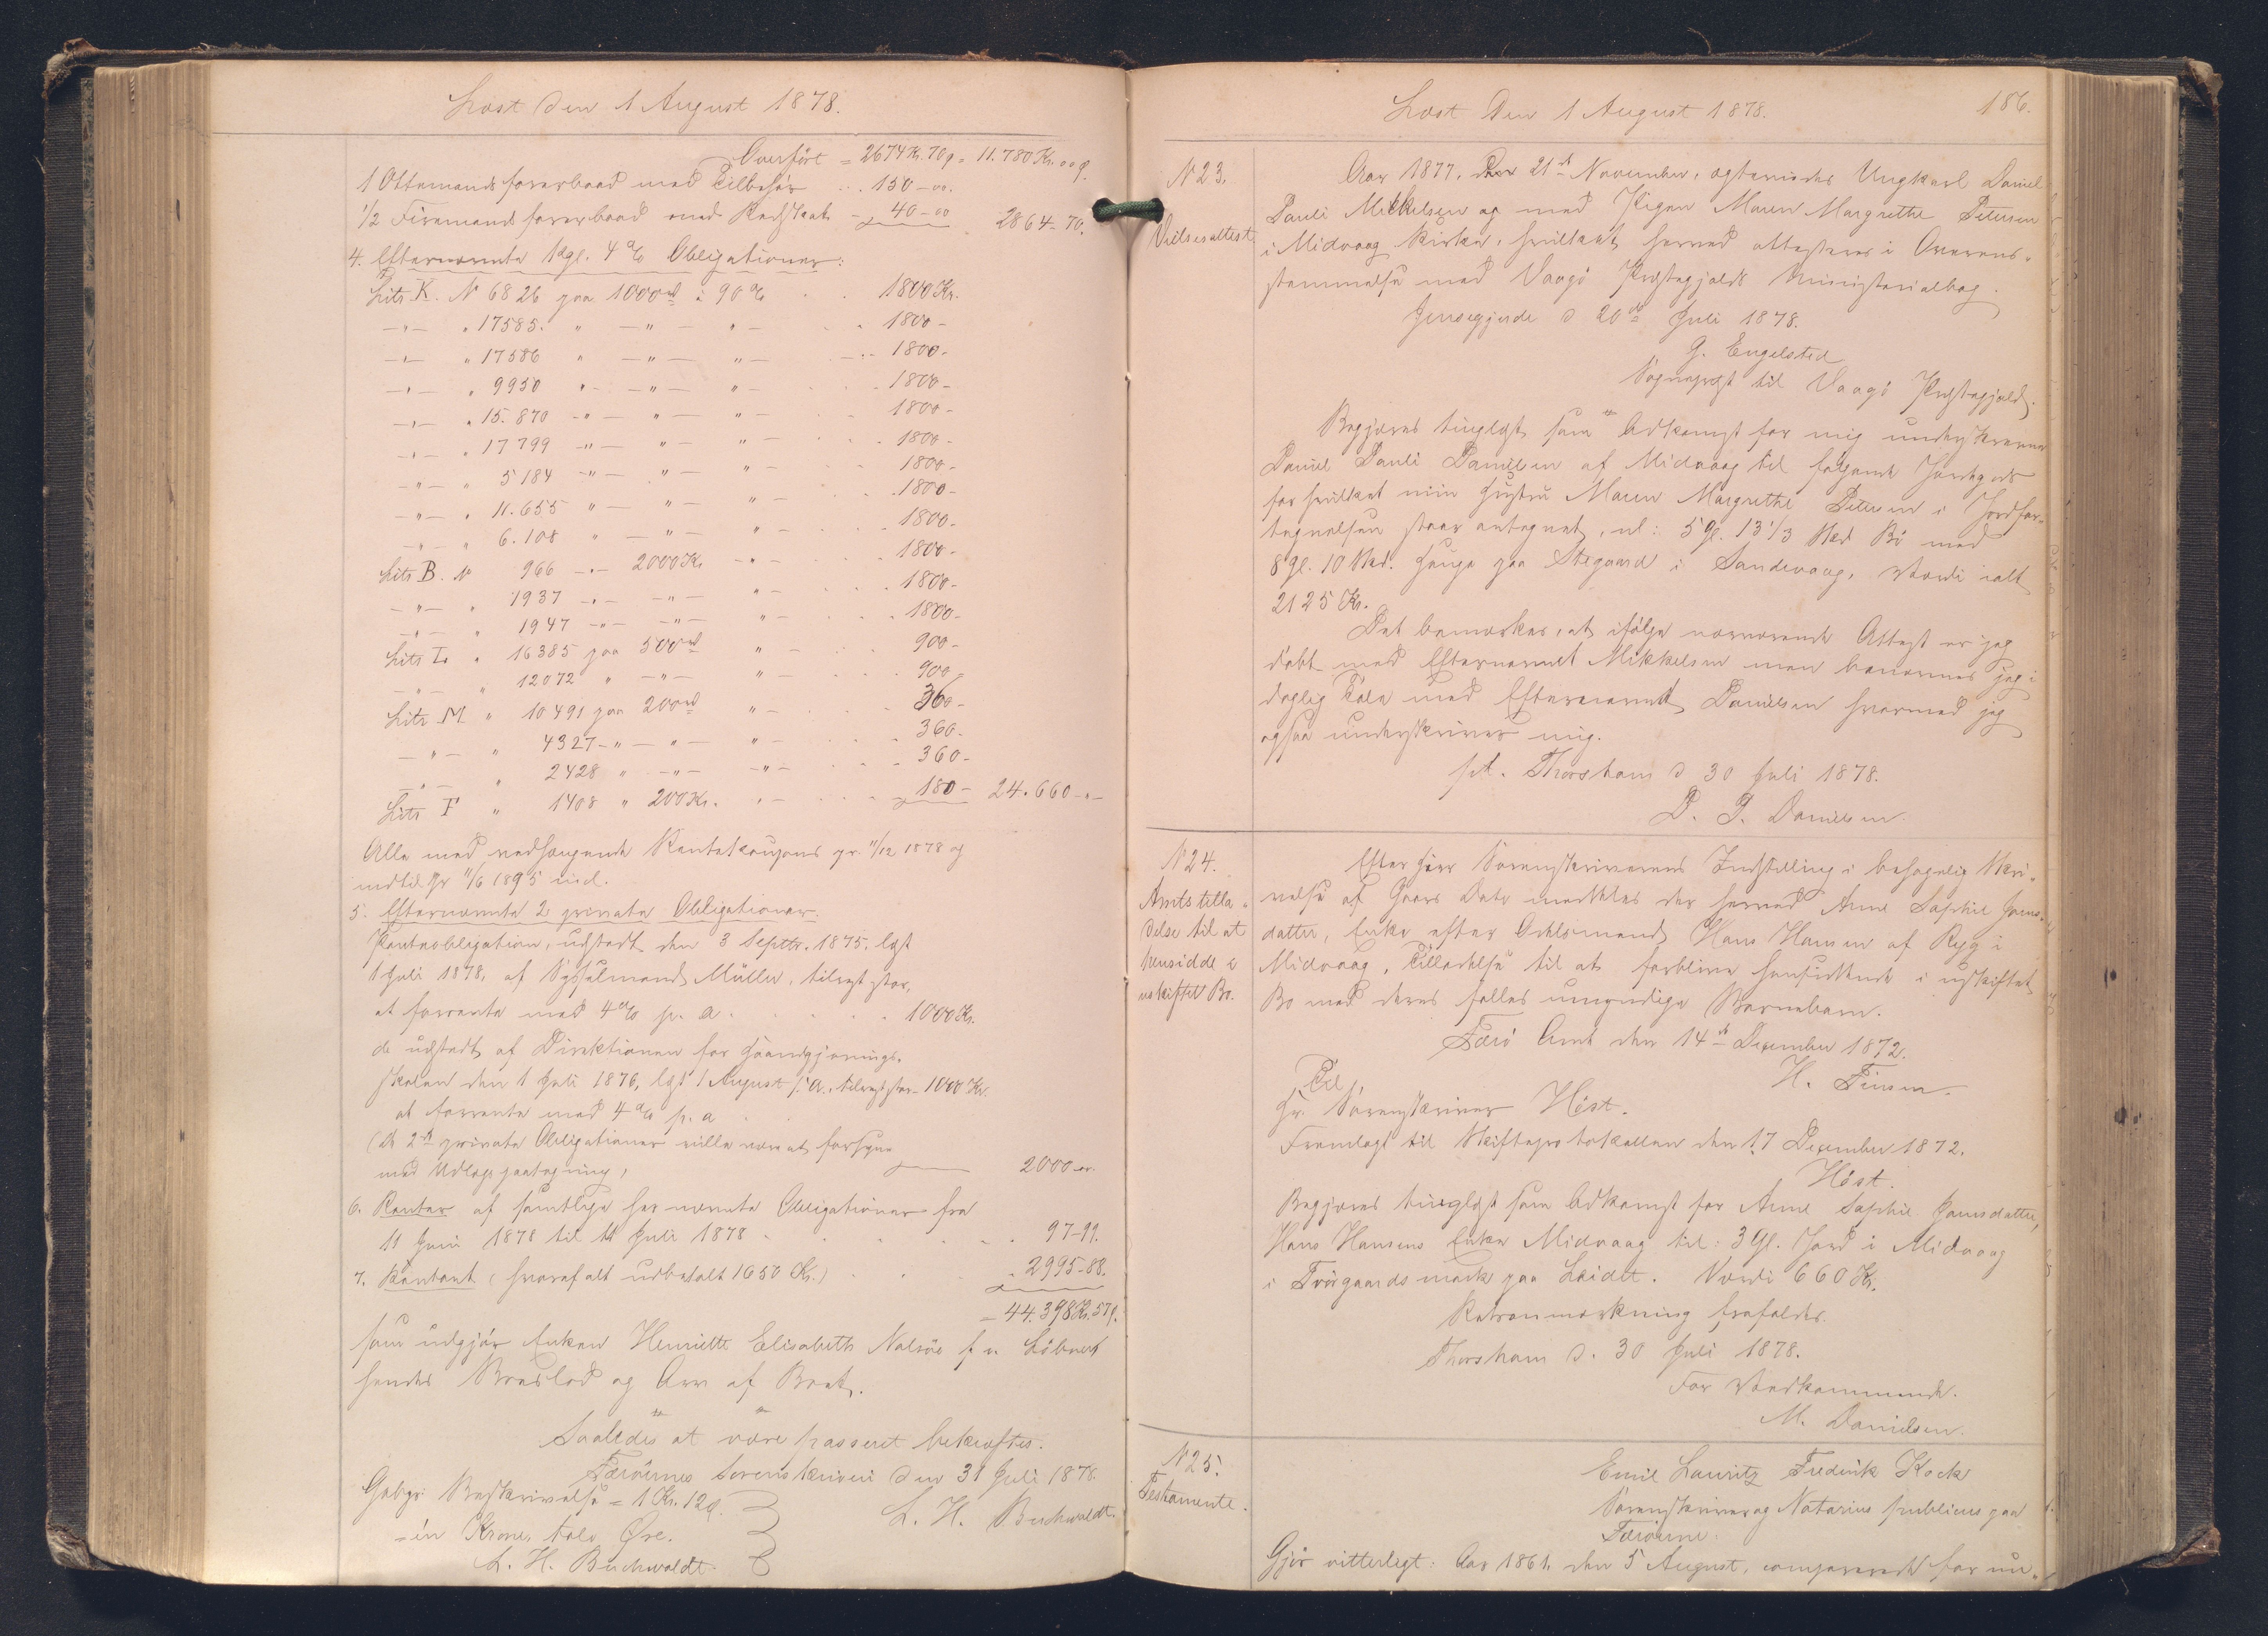 Læst den 1 August 1878.
Overført = 2674 Kr. 70 ø = 11.780 Kr. 00 ø.
1 Ottemandsfarerbaad med Tilbehør . . 150 - 00.
1/2 Firemandsfarerbaad med Redskab - 40 - 00 2864 - 70.
4. Efternævnte Kgl. 4 % Obligationer:
Litr. K. N 6826 paa 1000 rd à 90 % . . 1800 Kr.
- " - " 17585. " - " - " - . . 1800 -
- " - " 17586 " - " - " - . . 1800 -
- " - " 9950 " - " - " - . . 1800 -
- " - " 15.870 - " - " - " - . . 1800 -
- " - " 17799 - " - " - " - . . 1800 -
- " - " 5184 - " - " - " - . . 1800 -
- " - " 11.655 " - " - " - . . 1800 -
- " - " 6.108 " - " - " - . . 1800 -
Litr. B. N 966 - " - 2000 Kr - " - . . 1800 -
- " - " 1937 - " - - " - " - . . 1800 -
- " - " 1947 - " - - " - " - . . 1800 -
Litr L. " 16385 paa 500 rd " - . . 900 -
- " - " 12072 " - " - " - . . 900
Litr. M " 10491 paa 200 rd " - . . 360 -
- " - " 4327 - " - " - " - . . 360 -
- " - " 2428 " - " - - " - . . 360 -
Litr F " 1408 " 200 Kr. " - . . 180 - 24.660 - " -
Alle med vedhængende Rentekoupons pr. 11/12 1878 og
indtil pr 11/6 1895 incl.
5. Efternævnte 2 private Obligationer.
Panteobligation, udstedt den 3 Septbr. 1875. læst
1 Juli 1878, af Sysselmand Müller, tilrest staar,
at forrente med 4 % p. a. . . . 1000 Kr.
do udstedt af Direktionen for Haandgjernings-
skolen den 1 Juli 1876, læst 1 August s. a., tilrest staar - 1000 Kr.
at forrente med 4 % p. a
(De 2de private Obligationer ville være at forsyne
med Udlægspaategning) 2000 - "
6. Renter af samtlige her nævnte Obligationer fra
11 Juni 1878 til 11 Juli 1878 . . . 97 - 99.
7. Kontant (hvoraf alt udbetalt 1650 Kr.) . . 2995 - 88.
= 44.398 Kr. 57 ø.
som udgjør Enken Henriette Elisabeth Nolsøe f. v. Løbner
hendes Boeslod og Arv af Boet.
Saaledes at være passeret bekræftes.
Færøernes Sorenskriveri den 31 Juli 1878.
L. H. Buchwaldt.
Gebyr: Beskrivelse = 1 Kr. 12 ø.
- én Krone, tolv Øre.
L. H. Buchwaldt.
Læst Den 1 August 1878. 186.
N 23.
Vielsesattest
Aar 1877. Den 21de November, ægteviedes Ungkarl Daniel
Pauli Mikkelsen og med Pigen Maren Margrethe Petersen
i Midvaag Kirke, hvilket herved attesteres i Overens-
stemmelse med Vaagø Præstegjelds Ministerialbog.
Jensegjerde d 20de Juli 1878.
G. Engelsted
Sognepræst til Vaagø Præstegjeld.
Begjæres tinglæst som Adkomst for mig underskrevne
Daniel Pauli Danielsen af Midvaag til følgende Jordegods
for hvilket min Hustru Maren Margrethe Petersen i Jordfor-
tegnelsen staar antegnet, nl: 5 Gl. 13 1/3 Skd Bø med
8 Gl. 10 Skd. Hauge paa Stegaard i Sandevaag, Værdi ialt
2125 Kr.
Det bemærkes, at ifølge nærværende Attest er jeg
døbt med Efternavnet Mikkelsen men benævnes jeg i
daglig Tale med Efternavnet Danielsen hvormed jeg
ogsaa underskriver mig.
pt. Thorshavn d 30 Juli 1878.
D. P. Danielsen.
N 24.
Amtstilla-
delse til at
hensidde i
uskiftet Bo.
Efter Herr Sorenskriverens Indstilling i behagelig Skri-
velse af Gaars Dato meddeles der herved Anne Sophie Joens-
datter, Enke efter Odelsmand Hans Hansen af Ryg i
Midvaag, Tilladelse til at forblive hensiddende i uskiftet
Bo med deres fælles umyndige Børnebørn.
Færø Amt den 14de December 1872.
H. Finsen.
Til
Hr. Sorenskriver Høst.
Fremlagt til Skifteprotokollen den 17 December 1872.
Høst.
Begjæres tinglæst som Adkomst for Anne Sophie Joensdatter,
Hans Hansens Enke Midvaag til: 3 Gl. Jord i Midvaag
i Tvørgaards mark paa Leidet. Værdi 660 Kr.
Retsanmærkning frafaldes.
Thorshavn d. 30 Juli 1878.
For Vedkommende.
M. Danielsen.
N 25.
Testamente.
Emil Lauritz Frederik Kock
Sorenskriver og Notarius publicus paa
Færøerne
Gjør vitterligt: Aar 1861, den 5 August, comparerede for un-